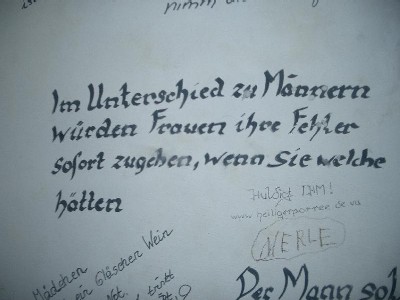 nimm
Im Unterschied zu Männern
würden Frauen ihre Fehler
sofort zugeben, wenn Sie welche
hätten
Huldigt IHM!
www.heiligerporree.de.vu
MERLE
Mädchen
ein Gläschen Wein
Der Mann sol